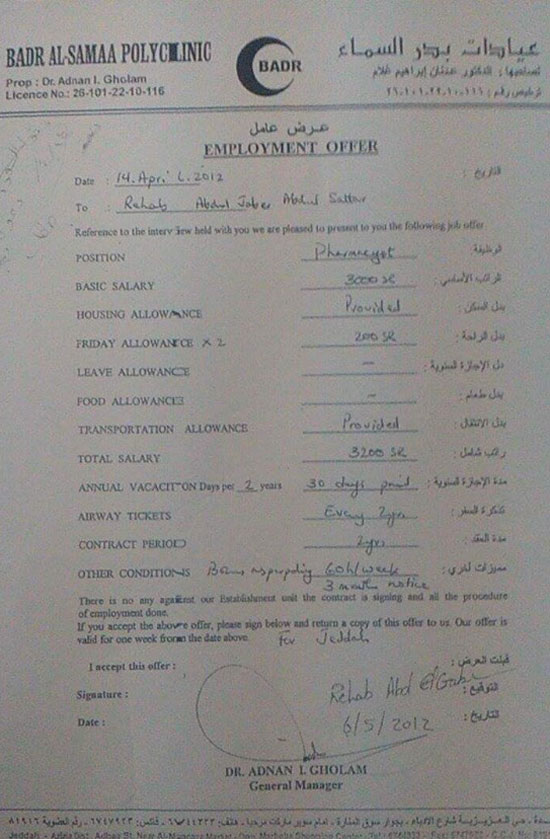 BADR AL-SAMAA POLYCLINIC
Prop : Dr. Adnan I. Gholam
Licence No.: 26-101-22-10-116
BADR
عيادات بدر السماء
لصاحبها : الدكتور عدنان إبراهيم غلام
ترخيص رقم : ٢٦-١٠١-٢٢-١٠-١١٦
عرض عامل
EMPLOYMENT OFFER
Date : 14. April. 2012 التاريخ :
To : Rehab Abdul Jaber Abdul Sattar
Reference to the interview held with you we are pleased to present to you the following job offer
POSITION Pharmacyst الوظيفة :
BASIC SALARY 3000 SR الراتب الأساسي :
HOUSING ALLOWANCE Provided بدل السكن :
FRIDAY ALLOWANCE x 2 200 SR بدل الراحة :
LEAVE ALLOWANCE - بدل الإجازة السنوية :
FOOD ALLOWANCE - بدل طعام :
TRANSPORTATION ALLOWANCE Provided بدل الانتقال :
TOTAL SALARY 3200 SR راتب شامل :
ANNUAL VACATION Days per 2 years 30 days paid مدة الإجازة السنوية :
AIRWAY TICKETS Every 2yrs تذكرة السفر :
CONTRACT PERIOD 2yrs مدة العقد :
OTHER CONDITIONS 60h/week مميزات أخرى :
3 months notice
There is no any against our Establishment until the contract is signing and all the procedure
of employment done.
If you accept the above offer, please sign below and return a copy of this offer to us. Our offer is
valid for one week from the date above. For Jeddah
I accept this offer : قبلت العرض :
Signature : Rehab Abd ElGaber التوقيع :
Date : 6/5/2012 التاريخ :
DR. ADNAN I. GHOLAM
General Manager